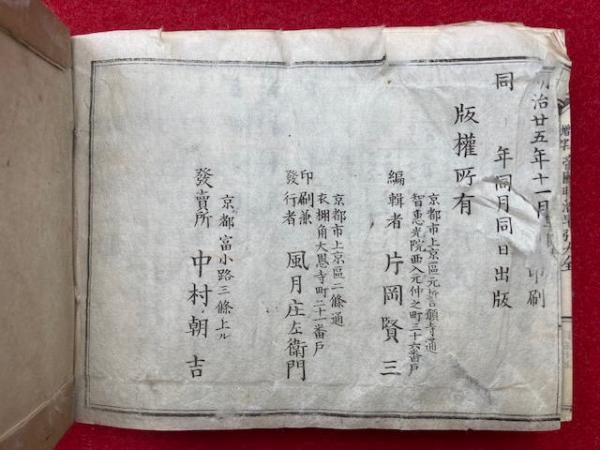 明治廿五年十一月 印刷
同 年同月同日出版
版權所有
京都市上京區元誓願寺通
智惠光院西入元仲之町三十六番戸
編輯者 片岡賢三
京都市上京區二條通
衣棚角大恩寺町二十一番戸
印刷兼
發行者 風月庄左衛門
京都富小路三條上ル
發賣所 中村朝吉